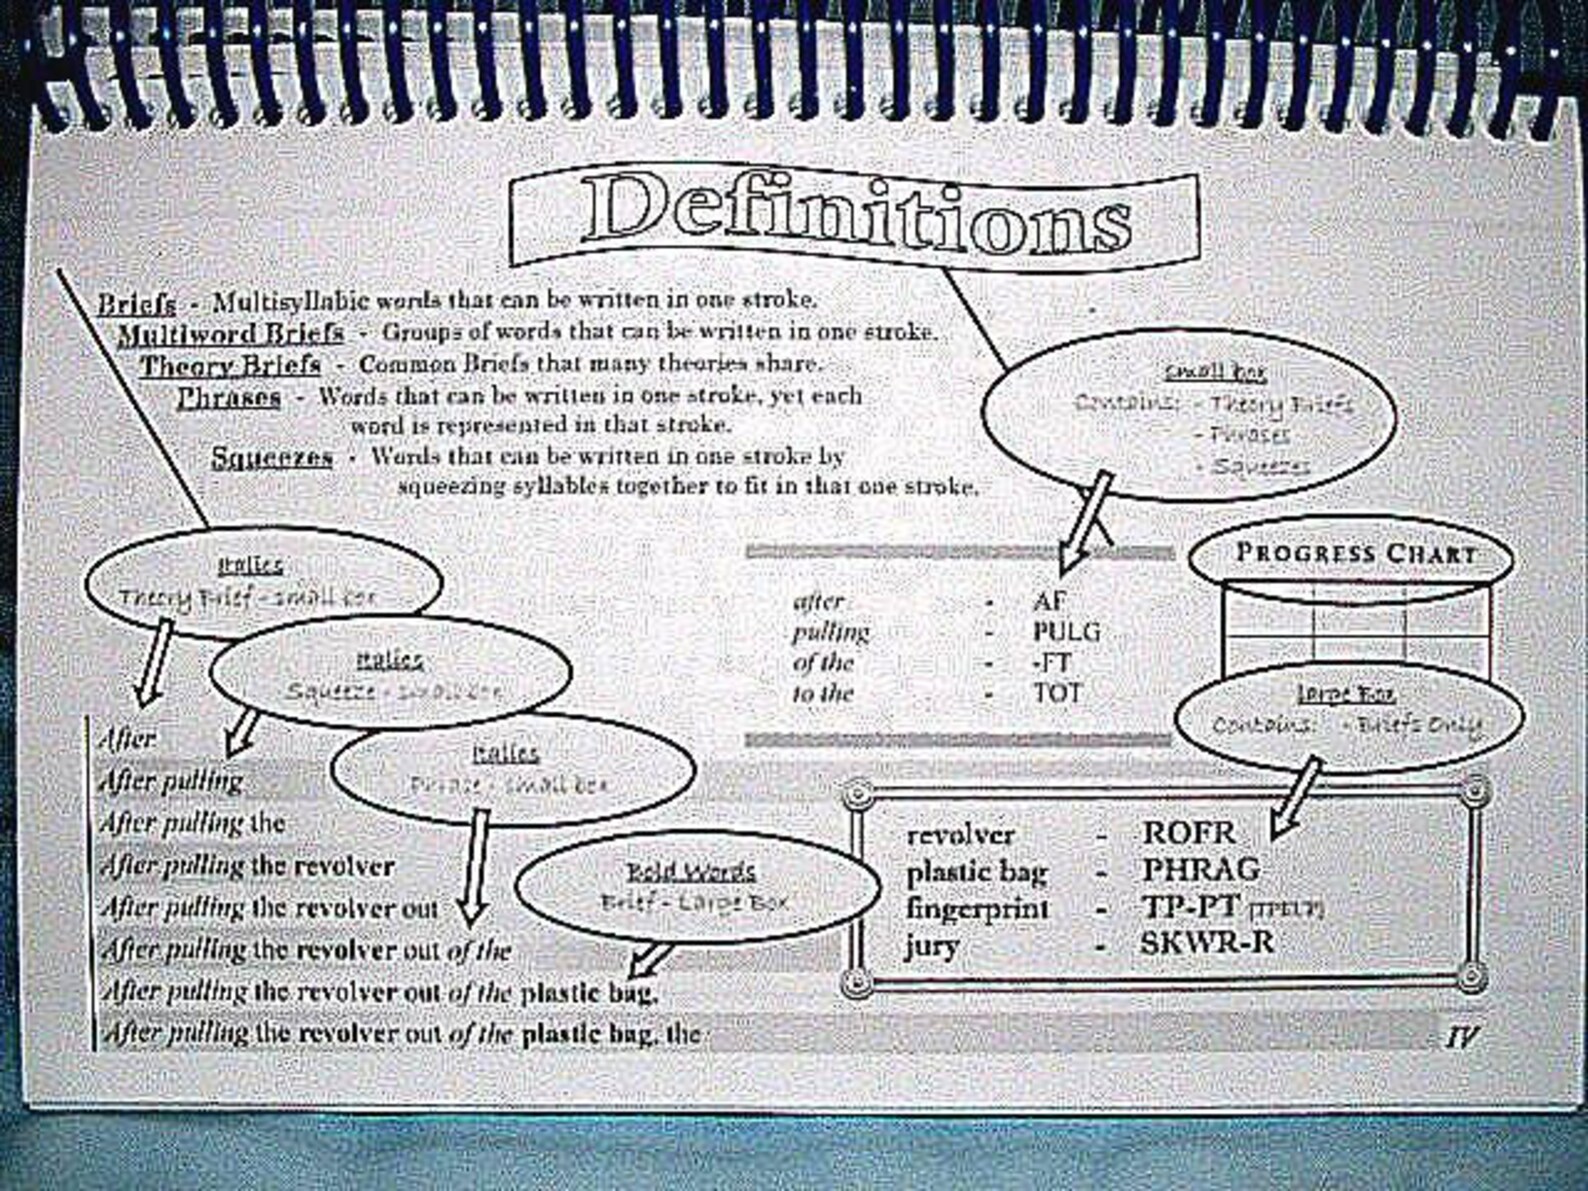 Definitions
Briefs - Multisyllabic words that can be written in one stroke.
Multiword Briefs - Groups of words that can be written in one stroke.
Theory Briefs - Common Briefs that many theories share.
Phrases - Words that can be written in one stroke, yet each
word is represented in that stroke.
Squeezes - Words that can be written in one stroke by
squeezing syllables together to fit in that one stroke.
Small Box
Contains: - Theory Briefs
- Phrases
- Squeezes
Italics
Theory Brief - Small Box
Italics
Squeeze - Small Box
Italics
Phrase - Small Box
Bold Words
Brief - Large Box
after - AF
pulling - PULG
of the - -FT
to the - TOT
PROGRESS CHART
Large Box
Contains: - Briefs Only
revolver - ROFR
plastic bag - PHRAG
fingerprint - TP-PT
jury - SKWR-R
After
After pulling
After pulling the
After pulling the revolver
After pulling the revolver out
After pulling the revolver out of the
After pulling the revolver out of the plastic bag,
After pulling the revolver out of the plastic bag, the
IV